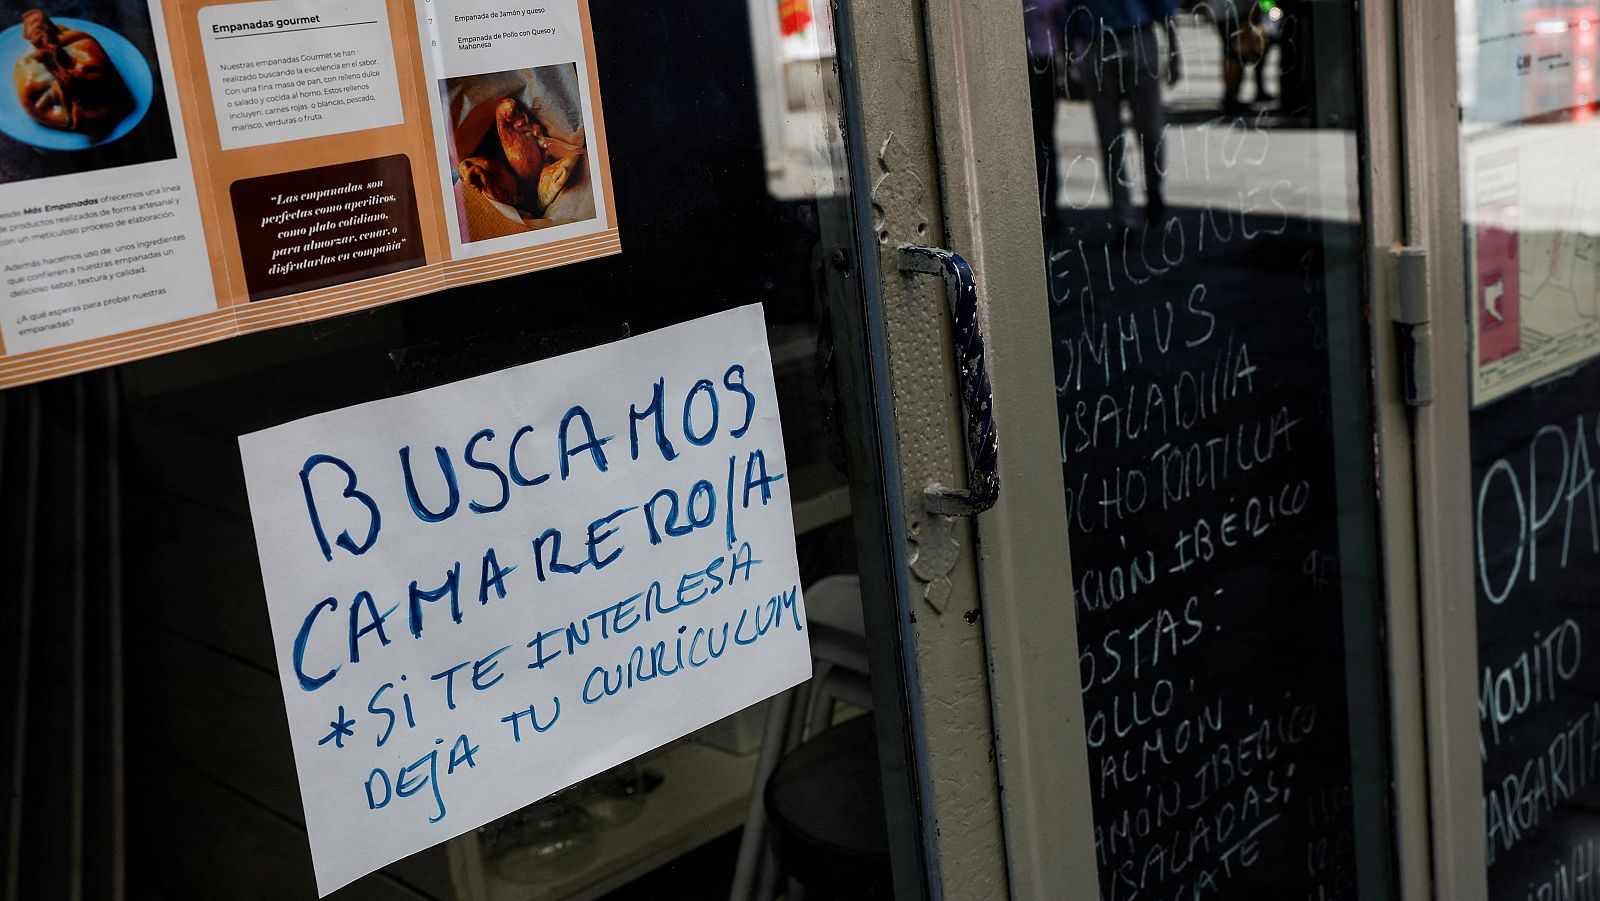 Empanadas gourmet
Nuestras empanadas Gourmet se han
realizado buscando la excelencia en el sabor.
Con una fina masa de pan, con relleno dulce
o salado y cocida al horno. Estos rellenos
incluyen: carnes rojas o blancas, pescado,
marisco, verduras o fruta.
"Las empanadas son
perfectas como aperitivos,
como plato cotidiano,
para almorzar, cenar, o
disfrutarlas en compañía"
7 Empanada de Jamón y queso
8 Empanada de Pollo con Queso y
Mahonesa
Más Empanadas ofrecemos una línea
de productos realizados de forma artesanal y
con un meticuloso proceso de elaboración.
Además hacemos uso de unos ingredientes
que confieren a nuestras empanadas un
delicioso sabor, textura y calidad.
¿A qué esperas para probar nuestras
empanadas?
BUSCAMOS
CAMARERO/A
*Si TE INTERESA
DEJA TU CURRiCULUM
MUS
TORTILLA
IBÉRICO
OSTAS:
OLLO.
ALMÓN.
AMÓN IBÉRICO
SALADAS:
OPAS
MOJITO
MARGARITA